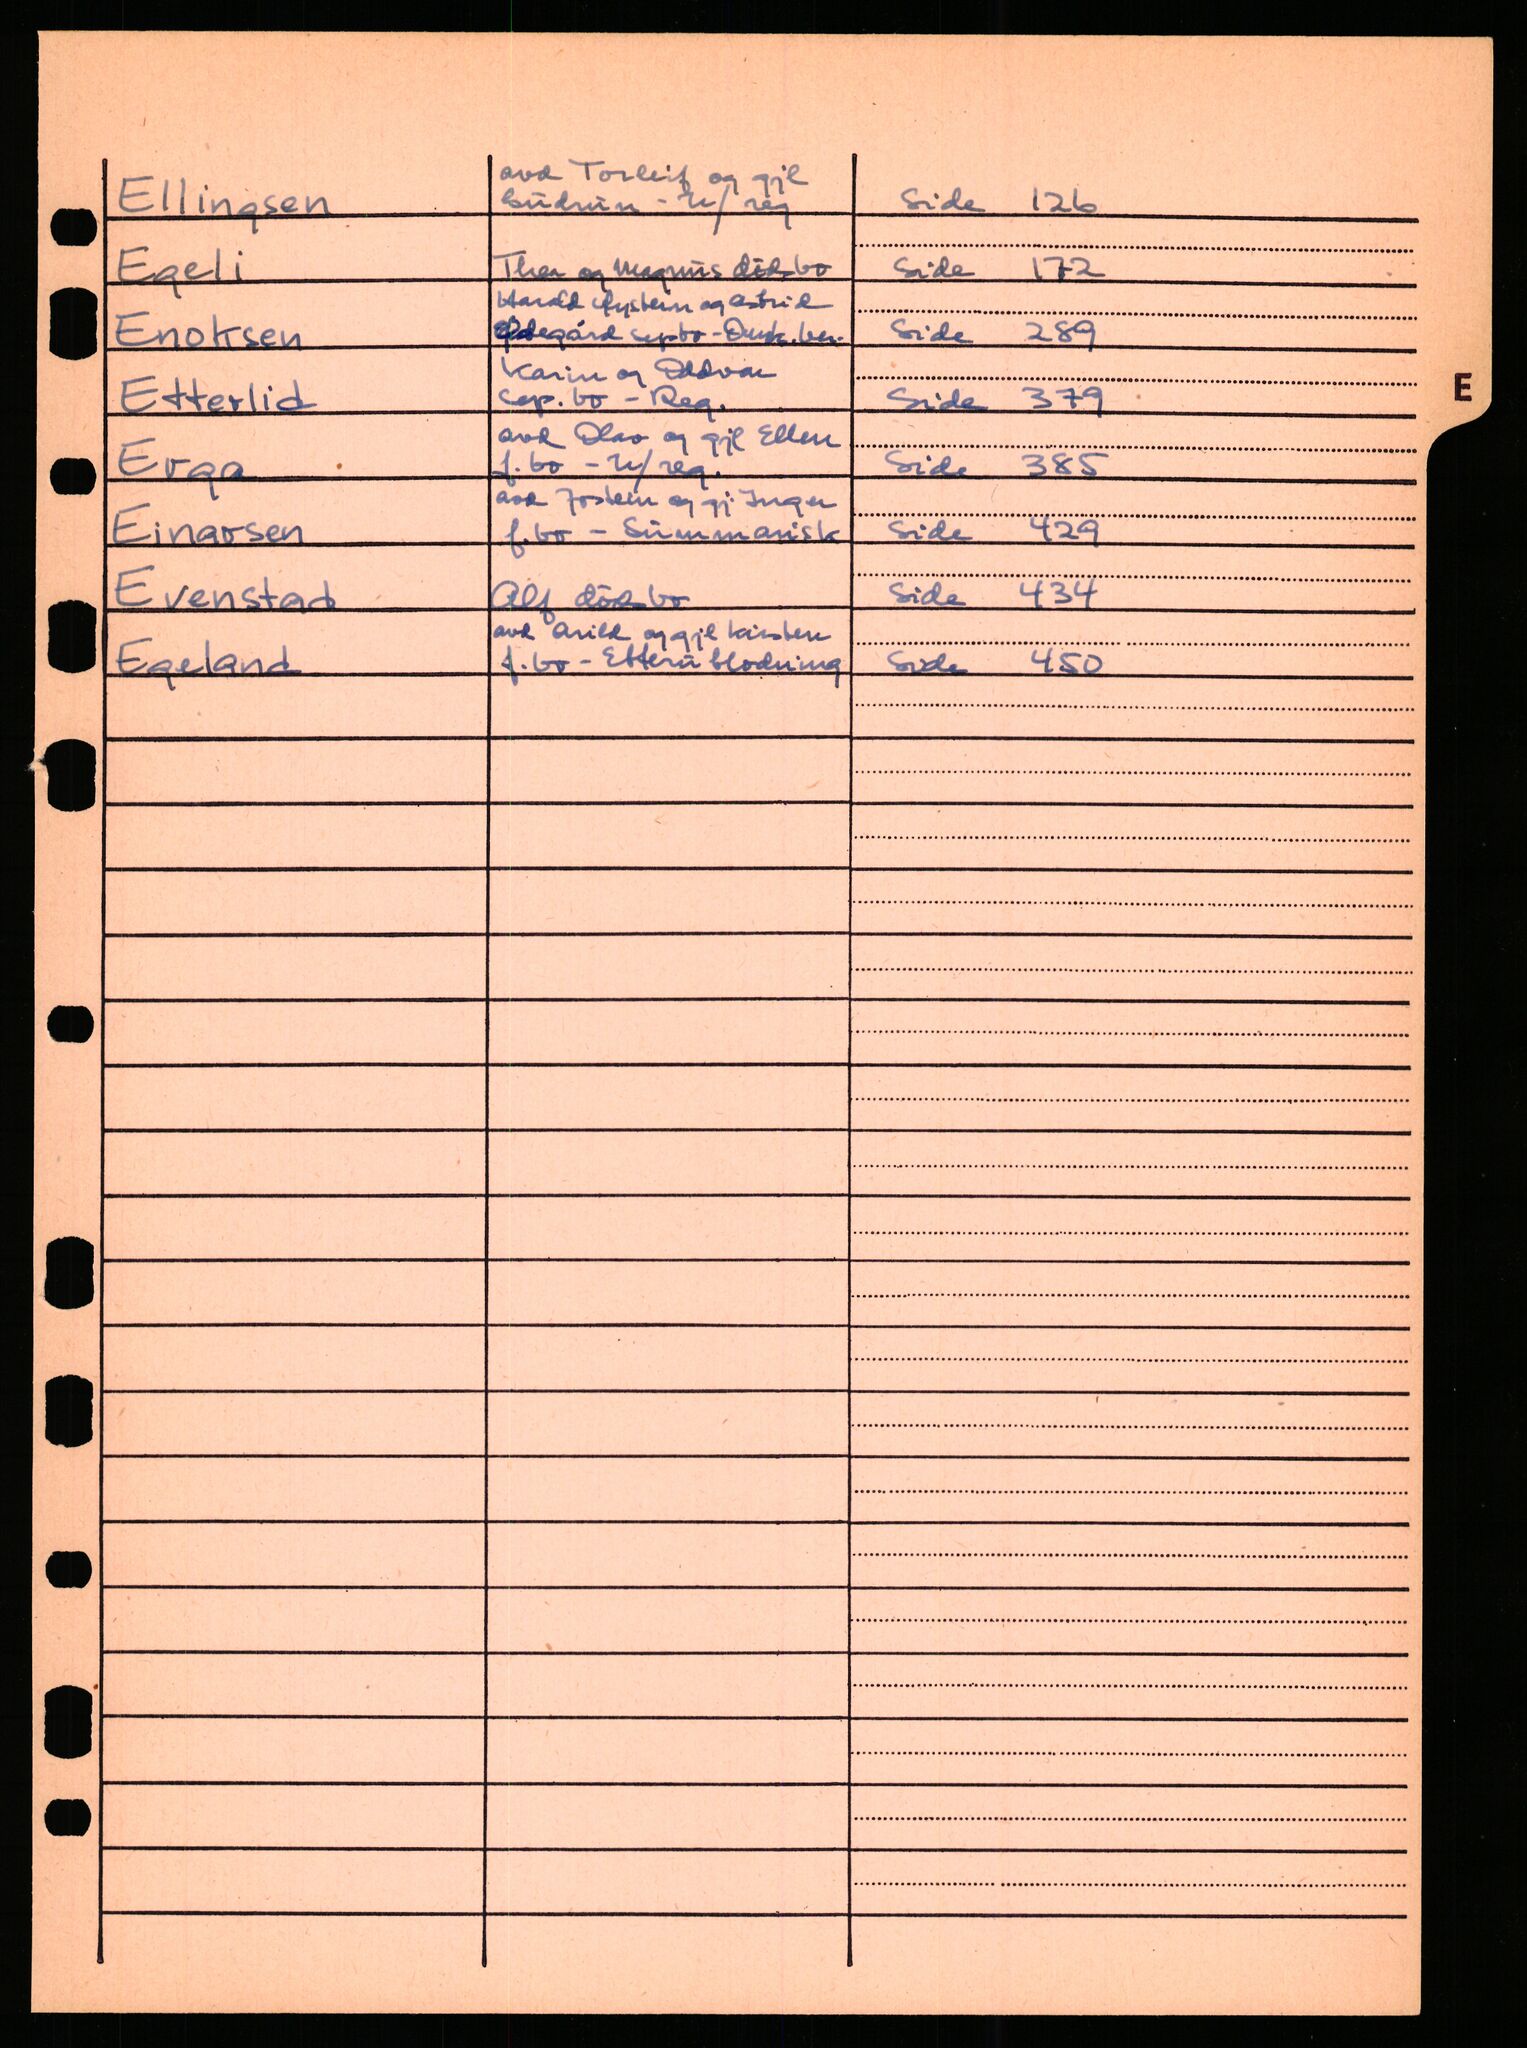 avd Torleif og gjl
Ellingsen Gudrun - U/reg Side 126
Egeli Thea og Magnus dødsbo Side 172
Harald Øystein og Astrid
Enoksen Ødegård sep.bo - Side 289
Karin og Oddvar
Etterlid Sep.bo - Reg. Side 379
E
avd Olav og gjl Ellen
Erga f.bo - U/reg. Side 385
avd Jostein og gj. Inger
Einarsen f.bo - Summarisk Side 429
Evenstad Alf dødsbo Side 434
avd Arild og gjl Kirsten
Egeland f.bo - Etterutlodning Side 450